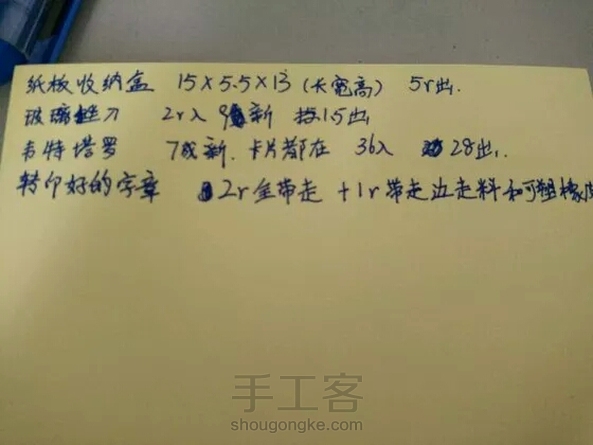 纸板收纳盒 15×5.5×13 (长宽高) 5r出.
玻璃 刀 2r入 9新 1.5出
韦特塔罗 7成新. 卡片都在 36入 28出.
转印好的字章 2r全带走 +1r带走边走料和可塑橡皮
手工客
shougongke.com